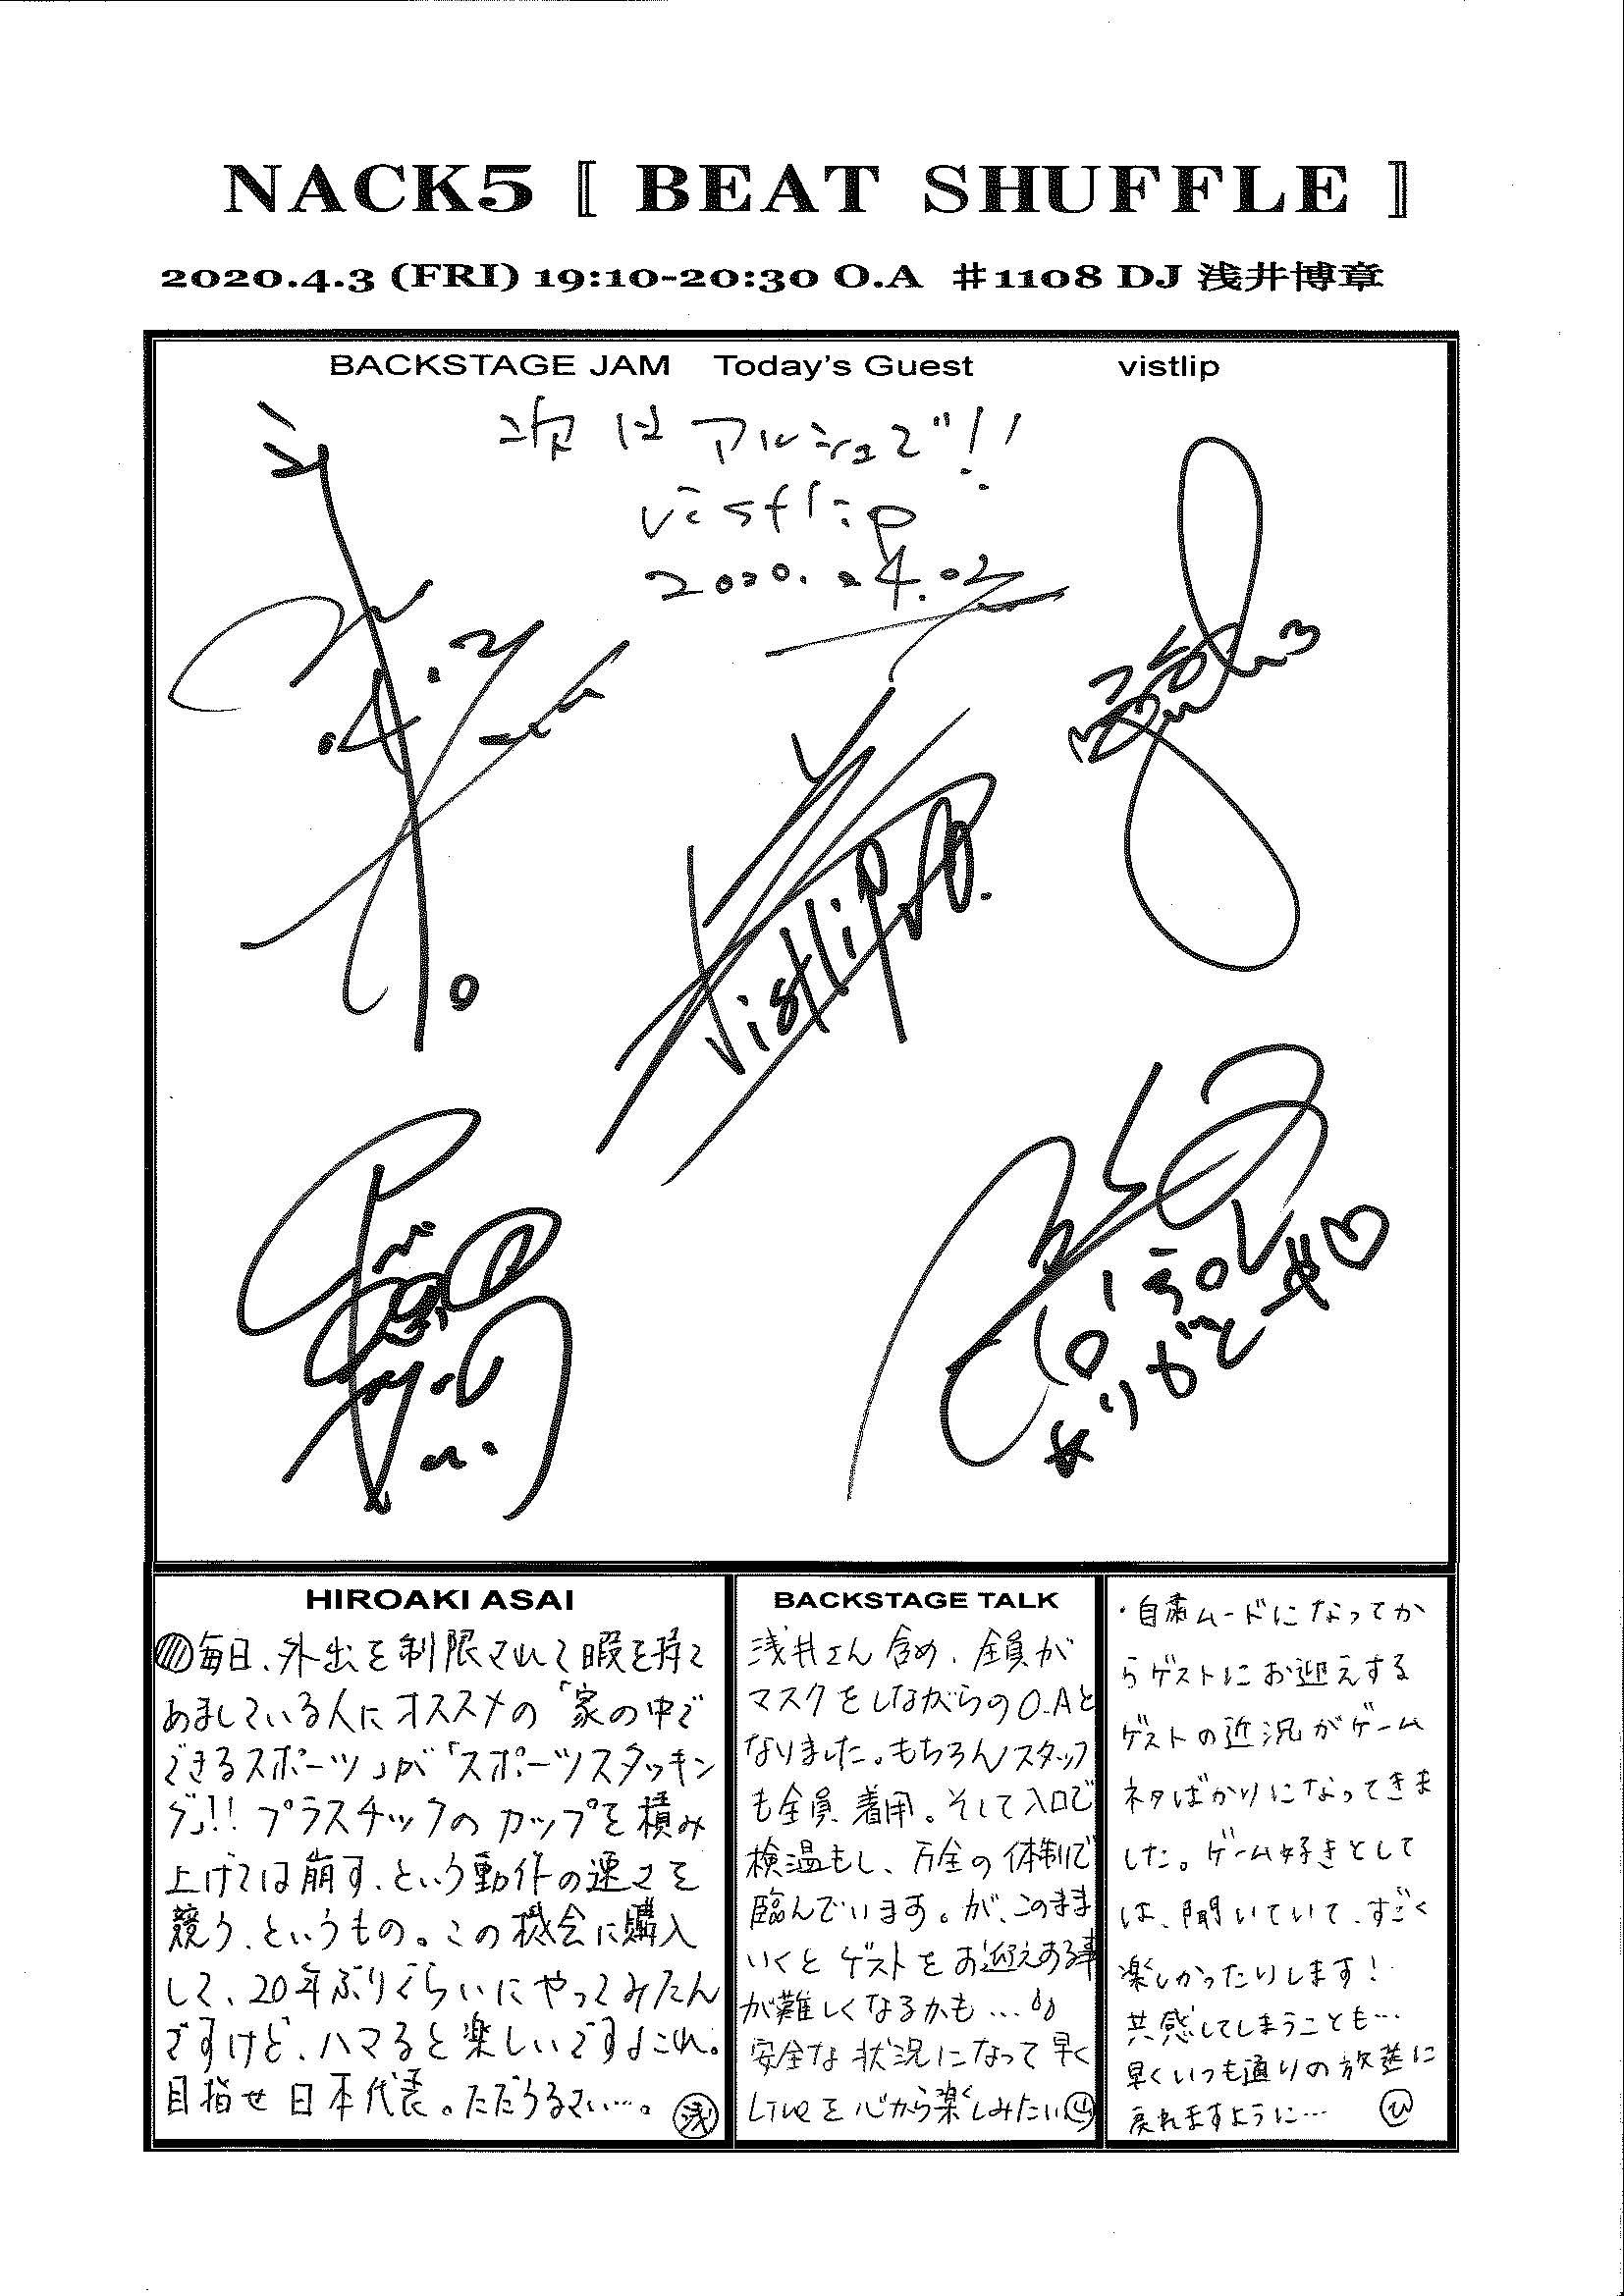 NACK5 〚 BEAT SHUFFLE 〛
2020.4.3 (FRI) 19:10-20:30 O.A ♯1108 DJ 浅井博章
BACKSTAGE JAM Today's Guest vistlip
次はアルシェで!!
vistlip
2020.04.02
vistlip
ありがとー
HIROAKI ASAI
毎日、外出を制限されて暇を持て
あましている人にオススメの「家の中で
できるスポーツ」が「スポーツスタッキン
グ」!! プラスチックのカップを積み
上げては崩す、という動作の速さを
競う、というもの。この機会に購入
して、20年ぶりぐらいにやってみたん
ですけど、ハマると楽しいですよこれ。
目指せ日本代表。ただうるさい…。 浅
BACKSTAGE TALK
浅井さん含め、全員が
マスクをしながらのO.Aと
なりました。もちろんスタッフ
も全員着用。そして入口で
検温もし、万全の体制で
臨んでいます。が、このまま
いくとゲストをお迎えする事
が難しくなるかも…
安全な状況になって早く
Liveを心から楽しみたい 山
・自粛ムードになってか
らゲストにお迎えする
ゲストの近況がゲーム
ネタばかりになってきま
した。ゲーム好きとして
は、聞いていて、すごく
楽しかったりします!
共感してしまうことも…
早くいつも通りの放送に
戻れますように… ひ